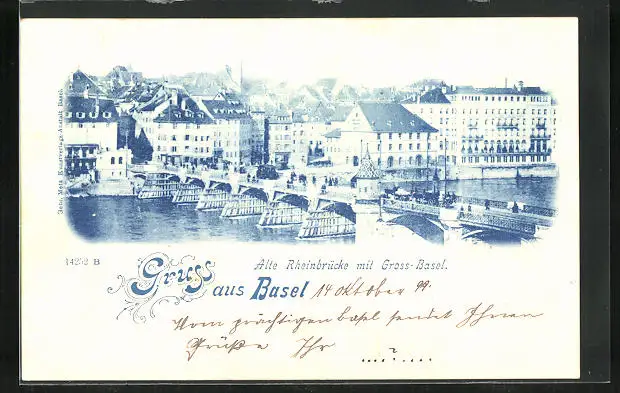 Gebr. Metz Kunstverlags-Anstalt Basel.
14252 B
Alte Rheinbrücke mit Gross-Basel.
Gruss aus Basel 14 Oktober 99.
Vom prächtigen Basel sendet Ihnen
Grüße Ihr ....?....